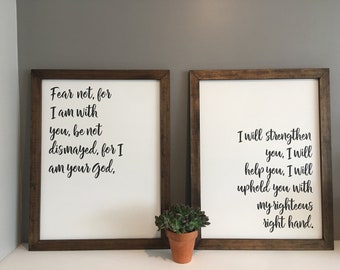 Fear not, for
I am with
you, be not
dismayed, for I
am your God,
I will strengthen
you, I will
help you, I will
uphold you with
my righteous
right hand.